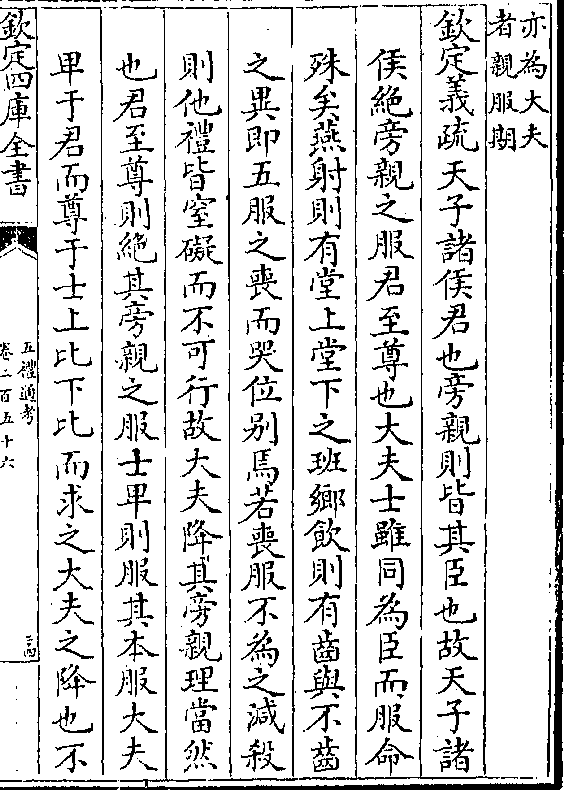 亦為大夫
者親服期
欽定義疏天子諸侯君也旁親則皆其臣也故天子諸
侯絶旁親之服君至尊也大夫士雖同為臣而服命
殊矣燕射則有堂上堂下之班鄉飲則有齒與不齒
之異即五服之喪而哭位别焉若喪服不為之減殺
則他禮皆窒礙而不可行故大夫降其旁親理當然
也君至尊則絶其旁親之服士卑則服其本服大夫
卑于君而尊于士上比下比而求之大夫之降也不
欽定四庫全書
五禮通考
卷二百五十六